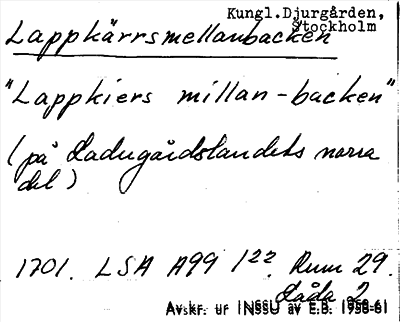 Kungl.Djurgården,
Stockholm
Lappkärrsmellanbacken
"Lappkiers millan-backen"
(på Ladugårdslandets norra
del)
1701. LSA A99 1²². Rum 29.
Låda 2
Avskr. ur INSSU av E.B. 1958-61